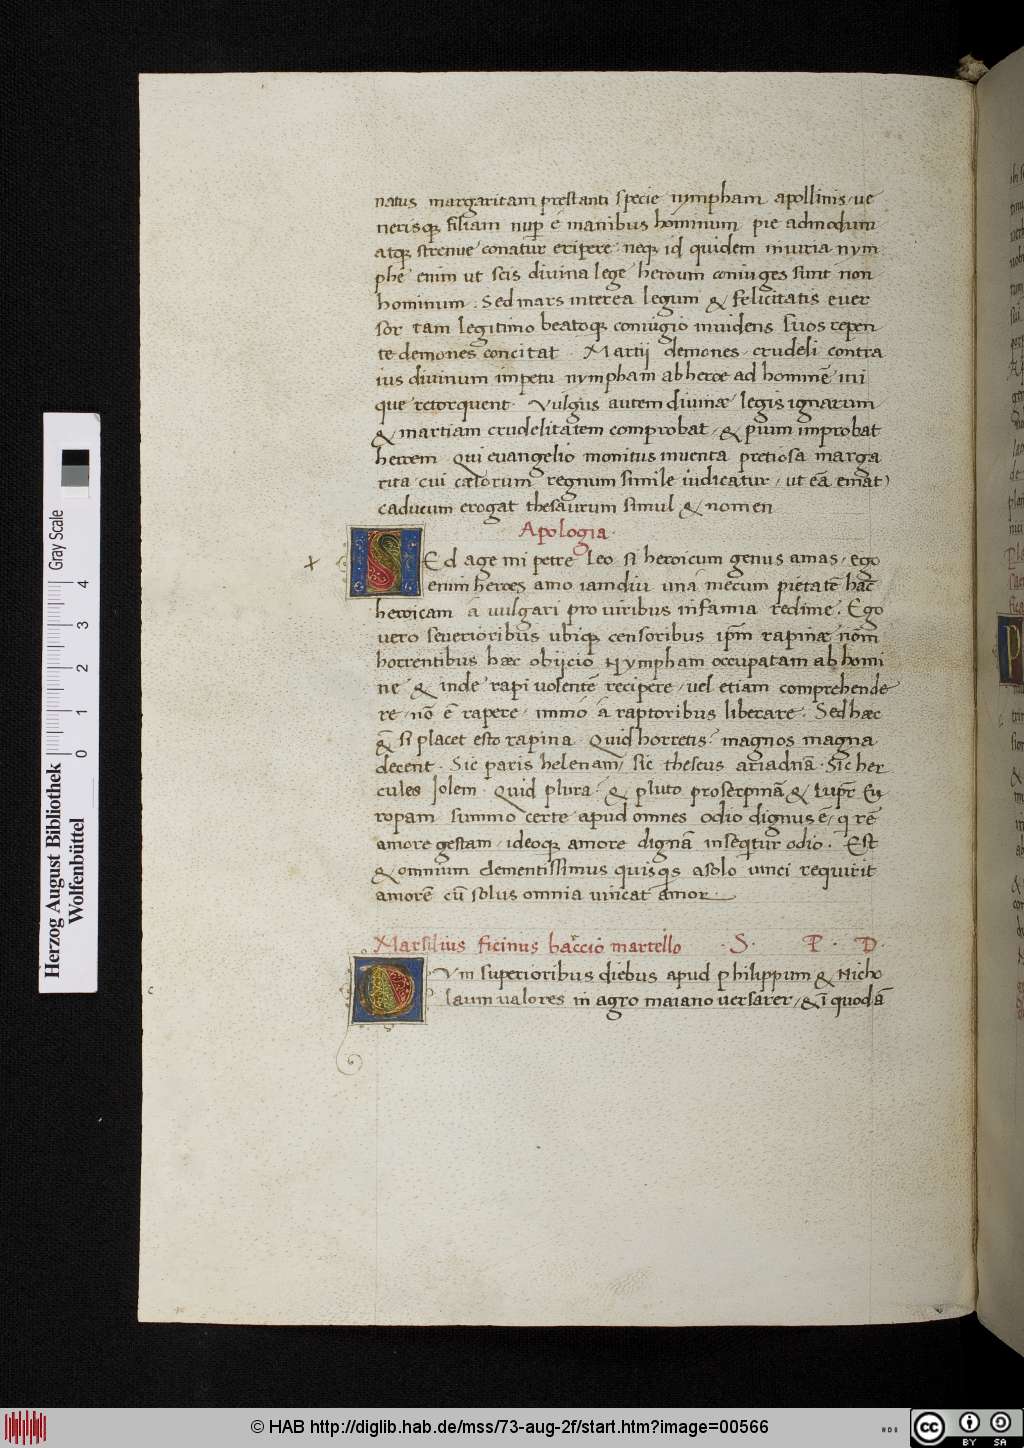 natus margaritam prestanti specie nympham apollinis, ue
nerisq̨ filiam nup̄ ē manibus hominum pie admodum
atq̨ strenue conatur eripere. neq̨ id quidem iniuria nym
phe enim ut scis diuina lege heroum coniuges sunt non
hominum. Sed mars interea legum & felicitatis euer
sor tam legitimo beatoq̨ coniugio inuidens suos repen
te demones concitat. Martij demones, crudeli contra
ius diuinum impetu nympham ab heroe ad hominē ini
que retorquent. Vulgus autem diuinæ legis ignarum
& martiam crudelitatem comprobat, & pium improbat
heroem qui euangelio monitus inuenta pretiosa marga
rita cui cælorum regnum simile iudicatur, ut eā emat
caducum erogat thesaurum simul & nomen
Apologia.
SEd age mi petre leo si heroicum genus amas, ego
enim heroes amo iamdiu una mecum pietatē hac
heroicam a uulgari pro uiribus infamia redime. Ego
uero seuerioribus ubiq̨ censoribus ip̄m rapinæ nom̄
horrentibus hæc obijcio Nympham occupatam ab homi
ne & inde rapi uolentē recipere, uel etiam comprehende
re, nō ē rapere, immo a raptoribus liberare. Sed hæc
& si placet esto rapina. Quid horretis? magnos magna
decent. Sic paris helenam, sic theseus ariadnā. Sic her
cules Iolem. Quid plura? & pluto proserpinā & Iupr̄ Eu
ropam summo certe apud omnes odio dignus ē, q̇ rē
amore gestam, ideoq̨ amore dignā inseq̇tur odio. Est
& omnium clementissimus quisq̇s a solo uinci requirit
amorē cū solus omnia uincat amor.
Marsilius ficinus baccio martello .S. P. D.
CVm superioribus diebus apud philippum & Nicho
laum ualores in agro maiano uersarer, & ī quodā
Herzog August Bibliothek
Wolfenbüttel
Gray Scale
0 1 2 3 4
© HAB http://diglib.hab.de/mss/73-aug-2f/start.htm?image=00566
cc BY SA